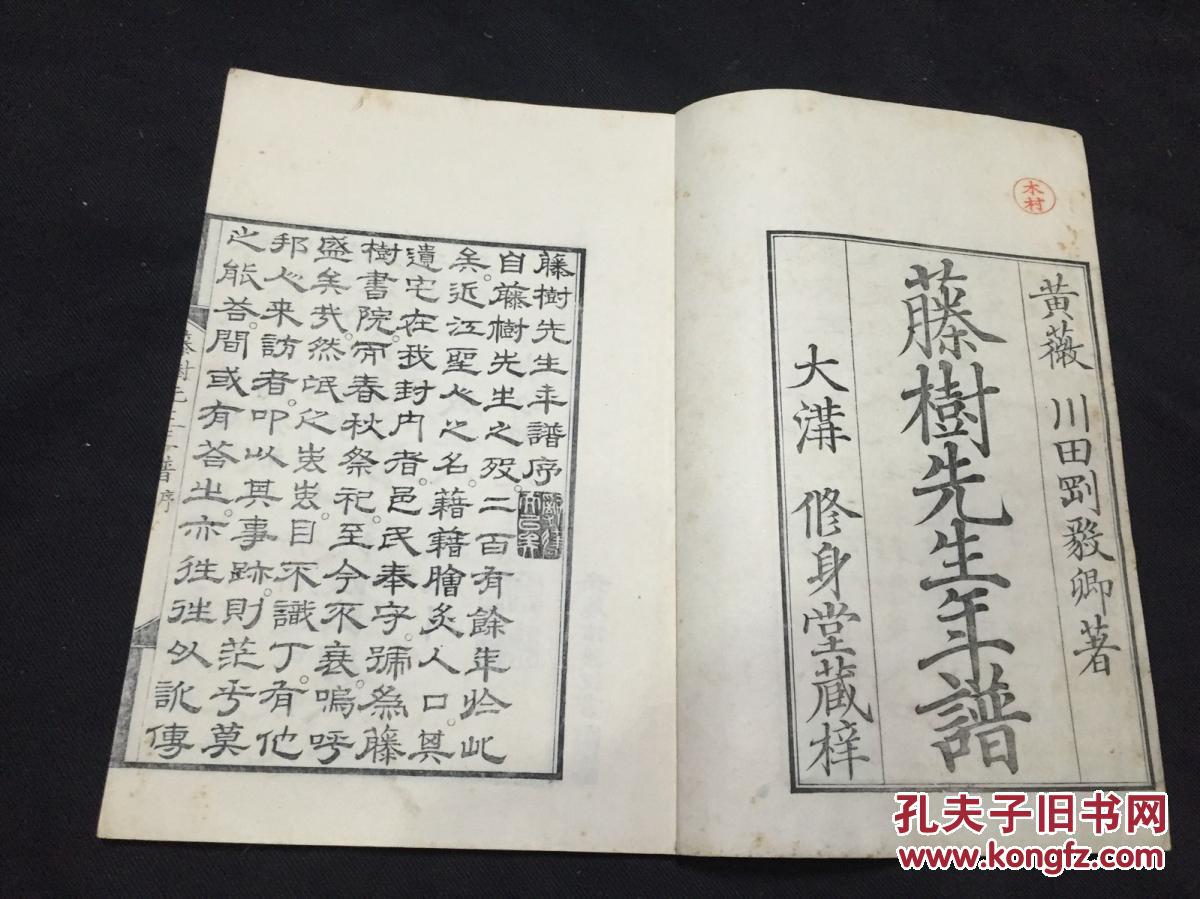 木村
黄薇 川田剛毅卿著
藤樹先生年譜
大溝 修身堂蔵梓
藤樹先生年譜序
自藤樹先生之歿。二百有餘年於此
矣。近江聖人之名。藉藉膾炙人口。其
遺宅在我封內者。邑民奉字。號爲藤
樹書院。而春秋祭祀。至今不衰。嗚呼
盛矣哉。然氓之蚩蚩。目不識丁。有他
邦人來訪者。叩以其事跡。則茫乎莫
之能答。間或有答㞢。亦往往以訛傳
孔夫子旧书网
www.kongfz.com